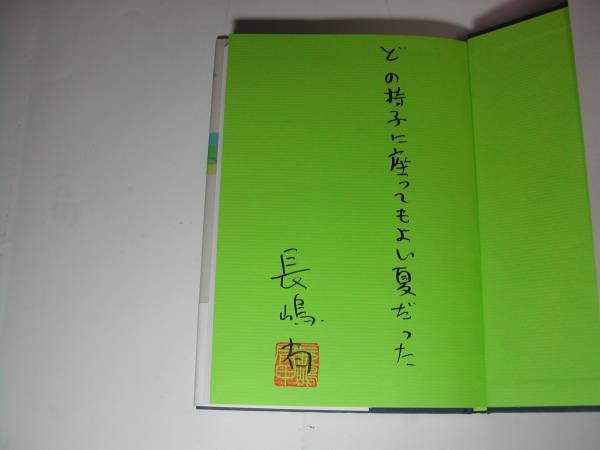 どの椅子に座ってもよい夏だった
長嶋有